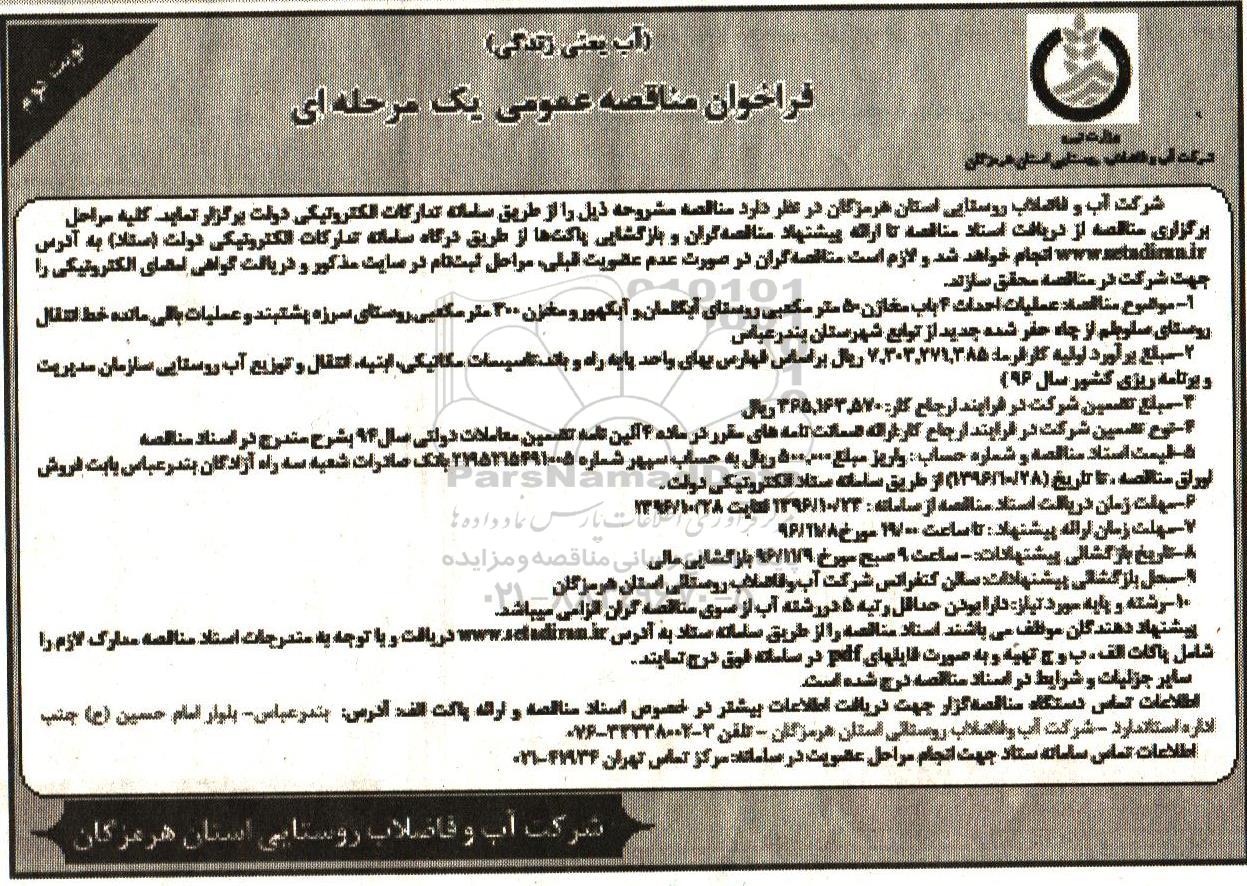 نوبت دوم
(آب یعنی زندگی)
فراخوان مناقصه عمومی یک مرحله ای
وزارت نیرو
شرکت آب و فاضلاب روستایی استان هرمزگان
شرکت آب و فاضلاب روستایی استان هرمزگان در نظر دارد مناقصه مشروحه ذیل را از طریق سامانه تدارکات الکترونیکی دولت برگزار نماید. کلیه مراحل
برگزاری مناقصه از دریافت اسناد مناقصه تا ارائه پیشنهاد مناقصه‌گران و بازگشایی پاکت‌ها از طریق درگاه سامانه تدارکات الکترونیکی دولت (ستاد) به آدرس
www.setadiran.ir انجام خواهد شد و لازم است مناقصه‌گران در صورت عدم عضویت قبلی، مراحل ثبت‌نام در سایت مذکور و دریافت گواهی امضای الکترونیکی را
جهت شرکت در مناقصه محقق سازند.
۱-موضوع مناقصه: عملیات احداث ۴ باب مخازن ۵۰ متر مکعبی روستای آبکلمان و آبکهور و مخزن ۳۰۰ متر مکعبی روستای سرزه پشتبند و عملیات باقی مانده خط انتقال
روستای سلوجلم از چاه حفر شده جدید از توابع شهرستان بندرعباس
۲-مبلغ برآورد اولیه کارفرما: ۷,۳۰۳,۲۷۱,۳۸۵ ریال براساس فهارس بهای واحد پایه راه و باند،تاسیسات مکانیکی، ابنیه، انتقال و توزیع آب روستایی سازمان مدیریت
و برنامه ریزی کشور سال ۹۶)
۳-مبلغ تضمین شرکت در فرایند ارجاع کار: ۳۶۵,۱۶۳,۵۷۰ ریال
۴-نوع تضمین شرکت در فرایند ارجاع کار:ارائه ضمانت نامه های مقرر در ماده ۴ آئین نامه تضمین معاملات دولتی سال ۹۴ بشرح مندرج در اسناد مناقصه
۵-قیمت اسناد مناقصه و شماره حساب: واریز مبلغ ۵۰۰,۰۰۰ ریال به حساب سپهر شماره بانک صادرات شعبه سه راه آزادگان بندرعباس بابت فروش
اوراق مناقصه ، تا تاریخ (۱۳۹۶/۱۰/۲۸) از طریق سامانه ستاد الکترونیکی دولت.
۶-مهلت زمان دریافت اسناد مناقصه از سامانه : ۱۳۹۶/۱۰/۲۳ لغایت ۱۳۹۶/۱۰/۲۸
۷-مهلت زمان ارائه پیشنهاد: تا ساعت ۱۹/۰۰ مورخ ۹۶/۱۱/۸
۸-تاریخ بازگشائی پیشنهادات: - ساعت ۹ صبح مورخ ۹۶/۱۱/۹ بازگشایی مالی
۹-محل بازگشائی پیشنهادات: سالن کنفرانس شرکت آب وفاضلاب روستائی استان هرمزگان
۱۰-رشته و پایه مورد نیاز: دارا بودن حداقل رتبه ۵ در رشته آب از سوی مناقصه گران الزامی میباشد.
پیشنهاد دهندگان موظف می باشند اسناد مناقصه را از طریق سامانه ستاد به آدرس www.setadiran.ir دریافت و با توجه به مندرجات اسناد مناقصه مدارک لازم را
شامل پاکات الف ، ب و ج تهیه و به صورت فایلهای pdf در سامانه فوق درج نمایند .
سایر جزئیات و شرایط در اسناد مناقصه درج شده است.
اطلاعات تماس دستگاه مناقصه‌گزار جهت دریافت اطلاعات بیشتر در خصوص اسناد مناقصه و ارائه پاکت الف: آدرس: بندرعباس- بلوار امام حسین (ع) جنب
اداره استاندارد -شرکت آب وفاضلاب روستائی استان هرمزگان - تلفن ۳-۳۳۳۳۸۰۰۲-۰۷۶
اطلاعات تماس سامانه ستاد جهت انجام مراحل عضویت در سامانه: مرکز تماس تهران ۴۱۹۳۴-۰۲۱
شرکت آب و فاضلاب روستایی استان هرمزگان
ParsNamadData
مرکز فرآوری اطلاعات پارس نماد داده ها
پایگاه اطلاع رسانی مناقصه و مزایده